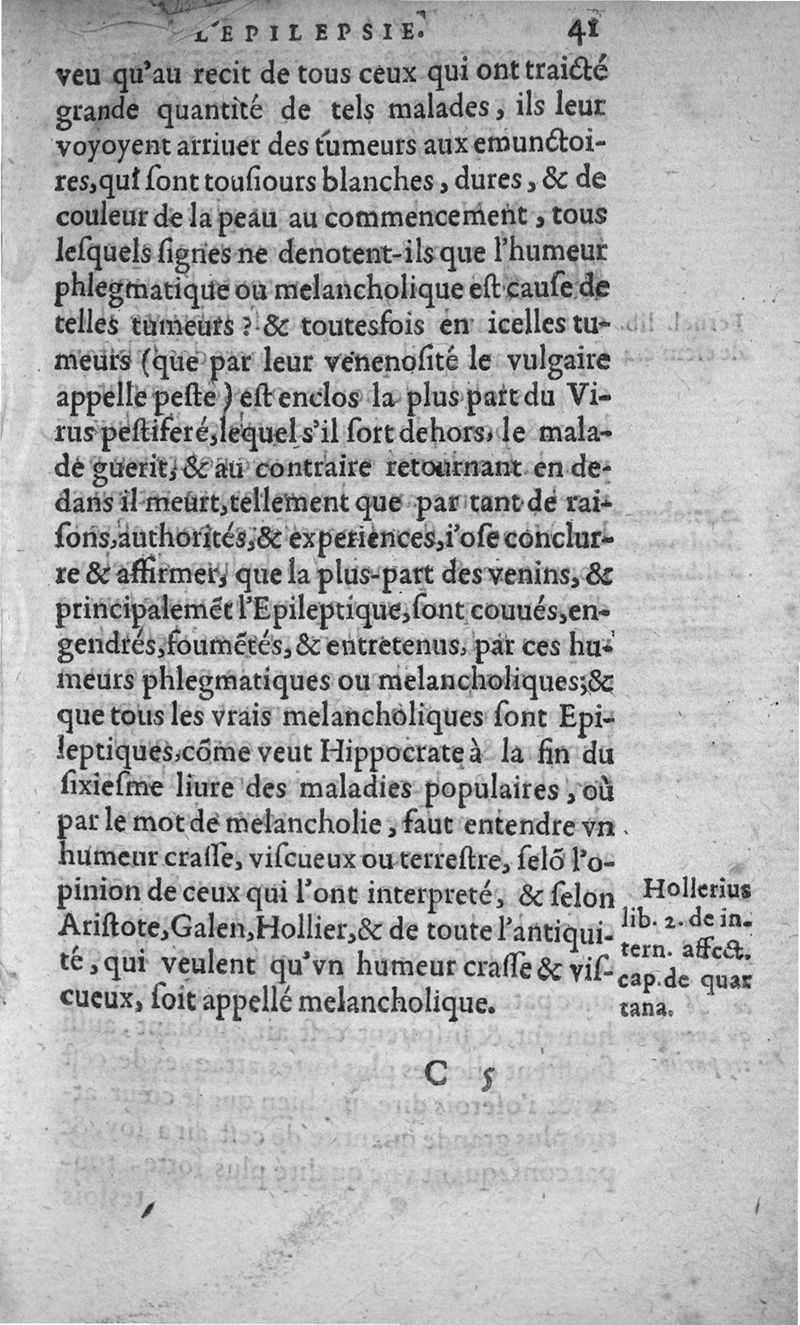 L'EPILEPSIE. 41
veu qu'au recit de tous ceux qui ont traicté
grande quantité de tels malades, ils leur
voyoyent arriuer des tumeurs aux emunctoi-
res, qui ſont touſiours blanches, dures, & de
couleur de la peau au commencement, tous
leſquels ſignes ne denotent-ils que l'humeur
phlegmatique ou melancholique eſt cauſe de
telles tumeurs? & toutesfois en icelles tu-
meurs (que par leur venenoſité le vulgaire
appelle peſte) eſt enclos la plus part du Vi-
rus peſtiferé, lequel s'il ſort dehors, le mala-
de guerit, & au contraire retournant en de-
dans il meurt, tellement que par tant de rai-
ſons, authorités, & experiences, i'oſe conclur-
re & affirmer, que la plus-part des venins, &
principalemẽt l'Epileptique, ſont couués, en-
gendrés, foumẽtés, & entretenus, par ces hu-
meurs phlegmatiques ou melancholiques; &
que tous les vrais melancholiques ſont Epi-
leptiques, cõme veut Hippocrate à la fin du
ſixieſme liure des maladies populaires, où
par le mot de melancholie, faut entendre vn
humeur craſſe, viſcueux ou terreſtre, ſelõ l'o-
pinion de ceux qui l'ont interpreté, & ſelon
Ariſtote, Galen, Hollier, & de toute l'antiqui-
té, qui veulent qu'vn humeur craſſe & viſ-
cueux, ſoit appellé melancholique.
Hollerius
lib. 2. de in-
tern. affect.
cap. de quar
tana.
C 5